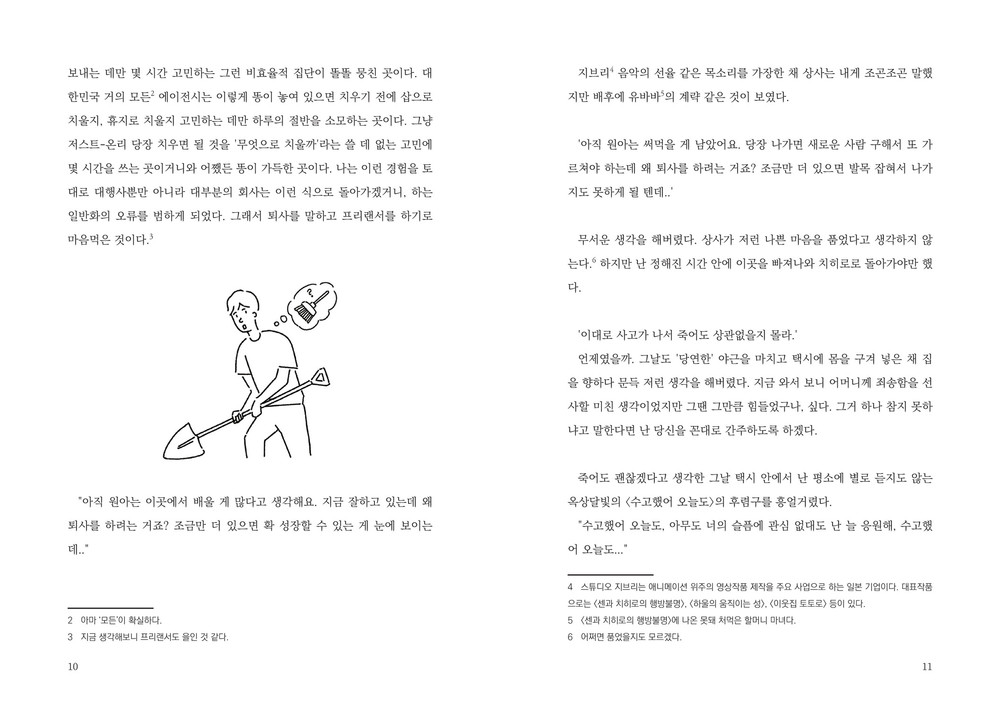 보내는 데만 몇 시간 고민하는 그런 비효율적 집단이 똘똘 뭉친 곳이다. 대
한민국 거의 모든2 에이전시는 이렇게 똥이 놓여 있으면 치우기 전에 삽으로
치울지, 휴지로 치울지 고민하는 데만 하루의 절반을 소모하는 곳이다. 그냥
저스트-온리 당장 치우면 될 것을 '무엇으로 치울까'라는 쓸 데 없는 고민에
몇 시간을 쓰는 곳이거니와 어쨌든 똥이 가득한 곳이다. 나는 이런 경험을 토
대로 대행사뿐만 아니라 대부분의 회사는 이런 식으로 돌아가겠거니, 하는
일반화의 오류를 범하게 되었다. 그래서 퇴사를 말하고 프리랜서를 하기로
마음먹은 것이다.3
?
"아직 원아는 이곳에서 배울 게 많다고 생각해요. 지금 잘하고 있는데 왜
퇴사를 하려는 거죠? 조금만 더 있으면 확 성장할 수 있는 게 눈에 보이는
데.."
2 아마 '모든'이 확실하다.
3 지금 생각해보니 프리랜서도 을인 것 같다.
10
지브리4 음악의 선율 같은 목소리를 가장한 채 상사는 내게 조곤조곤 말했
지만 배후에 유바바5의 계략 같은 것이 보였다.
'아직 원아는 써먹을 게 남았어요. 당장 나가면 새로운 사람 구해서 또 가
르쳐야 하는데 왜 퇴사를 하려는 거죠? 조금만 더 있으면 발목 잡혀서 나가
지도 못하게 될 텐데..'
무서운 생각을 해버렸다. 상사가 저런 나쁜 마음을 품었다고 생각하지 않
는다.6 하지만 난 정해진 시간 안에 이곳을 빠져나와 치히로로 돌아가야만 했
다.
'이대로 사고가 나서 죽어도 상관없을지 몰라.'
언제였을까. 그날도 '당연한' 야근을 마치고 택시에 몸을 구겨 넣은 채 집
을 향하다 문득 저런 생각을 해버렸다. 지금 와서 보니 어머니께 죄송함을 선
사할 미친 생각이었지만 그땐 그만큼 힘들었구나, 싶다. 그거 하나 참지 못하
냐고 말한다면 난 당신을 꼰대로 간주하도록 하겠다.
죽어도 괜찮겠다고 생각한 그날 택시 안에서 난 평소에 별로 듣지도 않는
옥상달빛의 〈수고했어 오늘도〉의 후렴구를 흥얼거렸다.
"수고했어 오늘도, 아무도 너의 슬픔에 관심 없대도 난 늘 응원해, 수고했
어 오늘도..."
4 스튜디오 지브리는 애니메이션 위주의 영상작품 제작을 주요 사업으로 하는 일본 기업이다. 대표작품
으로는 〈센과 치히로의 행방불명〉, 〈하울의 움직이는 성〉, 〈이웃집 토토로〉 등이 있다.
5 〈센과 치히로의 행방불명〉에 나온 못돼 처먹은 할머니 마녀다.
6 어쩌면 품었을지도 모르겠다.
11